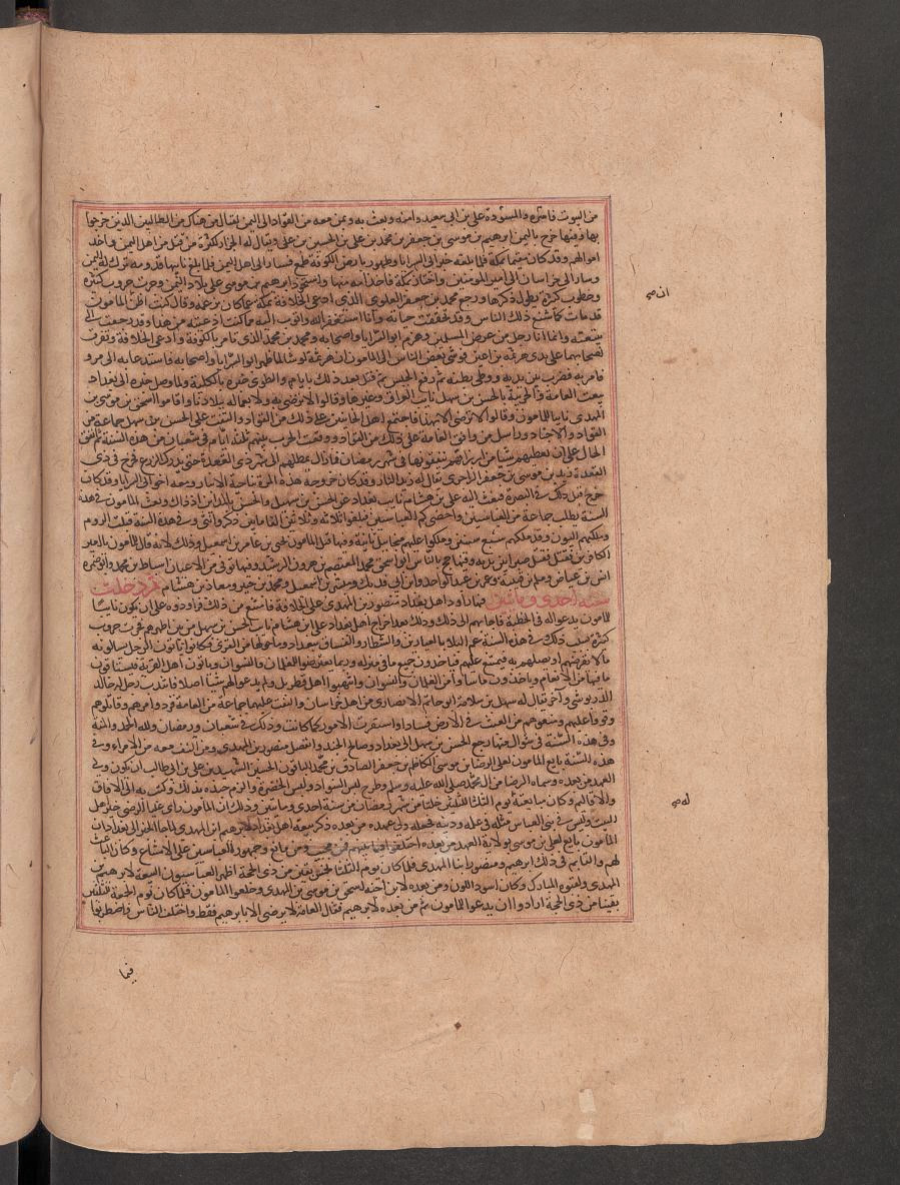 من البيوت فأمنوه والمسودة علي بن ابي سعيد وامنه وبعث به وبمن معه من القواد الى اليمن لقتال من هناك من الطالبيين الذين خرجوا
بها وفيها خرج باليمن ابرهيم بن موسى بن جعفر بن محمد بن علي بن الحسين بن علي ويقال له الجزار لكثرة من قتل من اهل اليمن واخذ
اموالهم وقد كان مقيما بمكة فلما بلغه خبر ابي السرايا وظهوره بارض الكوفة طمع فسار الى اهل اليمن فلما بلغ نايبها قدومه ترك له اليمن
وسار الى خراسان الى امير المومنين واجتاز بمكة فاخذ امه منها واستحوذ ابرهيم بن موسى على بلاد اليمن وجرت حروب كثيرة
وخطوب كبيرة يطول ذكرها ورجع محمد بن جعفر العلوي الذي ادعى الخلافة بمكة عما كان يزعمه وقال كنت اظن المامون
قد مات كما شنع ذلك الناس وقد تحققت حياته وانا استغفر الله واتوب اليه مما كنت ادعيته من هذا وقد رجعت الى
بيعته وانما انا رجل من عرض المسلمين وهزم ابو السرايا واصحابه ومحمد بن محمد الذي تامر بالكوفة وادعى الخلافة وتفرق
اصحابهما على يدي هرثمة بن اعين ووشى بعض الناس الى المامون ان هرثمة لو شا لما ظهر ابو السرايا واصحابه فاستدعا به الى مرو
فامر به فضرب بين يديه ووطى بطنه ثم رفع الى الحبس ثم قتل بعد ذلك بايام وانطوى خبره بالكلية ولما وصل خبره الى بغداد
بيعت العامة والحربية بالحسن بن سهل نايب العراق وغيرها وقالوا لا نرضى به ولا بعماله ببلادنا واقاموا اسحق بن موسى بن
المهدي نايبا للمامون واجتمع اهل الجانبين على ذلك من القواد والتفت على الحسن بن سهل جماعة من
القواد والاجناد وراسل من وافق العامة على ذلك من القواد ووقعت الحرب بينهم ثلثة ايام في شعبان من هذه السنة ثم اتفق
الحال على ان يعطيهم شيئا من ارزاقهم ينفقونها في شهر رمضان فما زال يمطلهم الى شهر ذي القعدة حتى يدرك الزرع فخرج في ذي
القعدة زيد بن موسى بن جعفر الذي يقال له زيد النار وقد كان خروجه هذه المرة بناحية الانبار ومعه اخو ابي السرايا وقد كان
خرج قبل ذلك في البصرة فبعث اليه علي بن هشام نايب بغداد عن الحسن بن سهل والحسن بالمداين اذ ذاك وبعث المامون في هذه
السنة يطلب جماعة من العباسيين واحصى كم العباسيين فبلغوا ثلاثة وثلاثين الفا ما بين ذكر وانثى وفي هذه السنة قتلت الروم
ملكهم اليون وقد ملكهم سبع سنين وملكوا عليهم ميخاييل ثانية وفيها قتل المامون يحيى بن عامر بن اسمعيل وذلك لانه قال للمامون يا امير
الكافرين فقتل صبرا بين يديه وفيها حج بالناس ابو اسحق محمد المعتصم بن هرون الرشيد وفيها توفي من الاعيان اسباط بن محمد وابو ضمرة
انس بن عياض ومسلم بن قتيبة وعمر بن عبد الواحد وابن ابي فديك ومبشر بن اسمعيل ومحمد بن حمير ومعاذ بن هشام ثم دخلت
سنة احدى ومايتين فيها راود اهل بغداد منصور بن المهدي على الخلافة فامتنع من ذلك فراودوه على ان يكون نايبا
للمامون يدعو له في الخطبة فاجابهم الى ذلك وذلك بعد اخراج اهل بغداد علي بن هشام نايب الحسن بن سهل من بين اظهرهم فجرت حروب
كثيرة بسبب ذلك وفي هذه السنة عم البلا بالعيارين والشطار والفساق ببغداد وما حولها من القرى فكانوا ياتون الرجل يسالونه
مالا يقرضهم او يصلهم به فيمتنع عليهم فياخذون جميع ما في منزله وربما تعرضوا للغلمان والنسوان وياتون اهل القرية فيستاقون
ما فيها من الانعام وياخذون ما شاوا من الغلمان والنسوان وانتهبوا اهل قطربل ولم يدعوا لهم شيئا اصلا فانتدب رجل له خالد
الدريوشي واخر يقال له سهل بن سلامة ابو حاتم الانصاري من اهل خراسان والتفت عليهما جماعة من العامة فردوا امرهم وقاتلوهم
وقووا عليهم ومنعوهم من العبث في الارض فسادا واستقرت الامور كما كانت وذلك في شعبان ورمضان ولله الحمد والمنة
وفي هذه السنة في شوال منها رجع الحسن بن سهل الى بغداد وصالح الجند وانفصل منصور بن المهدي ومن التف معه من الامراء وفي
هذه السنة بايع المامون لعلي الرضا بن موسى الكاظم بن جعفر الصادق بن محمد الباقر بن الحسين الشهيد بن علي بن ابي طالب ان يكون ولي
العهد من بعده وسماه الرضا من ال محمد صلى الله عليه وسلم وطرح لبس السواد ولبس الخضرة والزم جنده بذلك وكتب به الى الافاق
والاقاليم وكان مبايعته يوم الثلثا لليلتين خلتا من شهر رمضان من سنة احدى ومايتين وذلك ان المامون راى عليا الرضى خير اهل
البيت وليس في بني العباس مثله في علمه ودينه فجعله ولي عهده من بعده ذكر بيعة اهل بغداد لابرهيم ابن المهدي لما جا الخبر الى بغداد ان
المامون بايع لعلي بن موسى بولاية العهد من بعده اختلفوا فيما بينهم فمن مجيب ومن مانع وجمهور العباسيين على الامتناع وكان الباعث
لهم والقايم في ذلك ابرهيم ومنصور ابنا المهدي فلما كان يوم الثلثا لخمس بقين من ذي الحجة اظهر العباسيون البيعة لابرهيم بن
المهدي ولقبوه المبارك وكان اسود اللون ومن بعده لابن اخيه اسحق بن موسى بن المهدي وخلعوا المامون فلما كان يوم الجمعة لليلتين
بقيتا من ذي الحجة ارادوا ان يدعوا للمامون ثم من بعده لابرهيم فقال العامة لا يرضى الا بابرهيم فقط واختلف الناس واضطربوا
فيما